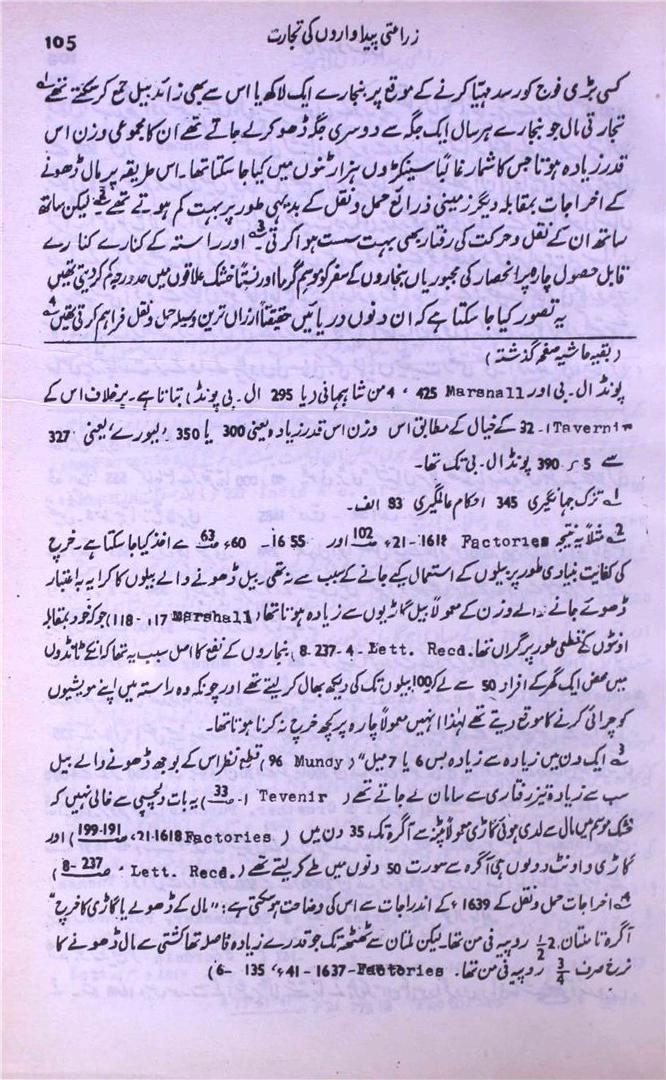 105
زراعتی پیداواروں کی تجارت
کسی بڑی فوج کو رسد مہیّا کرنے کے موقع پر بنجارے ایک لاکھ یا اس سے بھی زائد بیل جمع کر سکتے تھے ؎1
تجارتی مال جو بنجارے ہر سال ایک جگہ سے دوسری جگہ ڈھو کر لے جاتے تھے ان کا مجموعی وزن اس
قدر زیادہ ہوتا جس کا شمار غالباً سینکڑوں ہزار ٹنوں میں کیا جا سکتا تھا۔ اس طریقہ پر مال ڈھونے
کے اخراجات بمقابلہ دیگر زمینی ذرائع حمل و نقل کے بدیہی طور پر بہت کم ہوتے تھے ؎2 لیکن ساتھ
ساتھ ان کے نقل و حرکت کی رفتار بھی بہت سست ہوا کرتی ؎3 اور راستہ کے کنارے کنارے
قابل حصول چارہ پر انحصار کی مجبوریاں بنجاروں کے سفر کو موسم گرما اور نسبتاً خشک علاقوں میں حد درجہ کم کر دیتی تھیں
یہ تصور کیا جا سکتا ہے کہ ان دنوں دریائیں حقیقتاً ارزاں ترین وسیلہ حمل و نقل فراہم کرتی تھیں ؎4
(بقیہ حاشیہ صفحہ گذشتہ)
پونڈ ال۔بی اور Marshall 425 ، 4 من شاہجہانی دیا 295 ال۔بی پونڈ) بتاتا ہے۔ برخلاف اس کے
Tavernier ا۔ 32 کے خیال کے مطابق اس وزن اس قدر زیادہ یعنی 300 یا 350 (لیورے) یعنی 327
سے 5 ر 390 پونڈ ال۔بی تک تھا۔
؎1 تزک جہانگیری 345 احکام عالمگیری 83 الف۔
؎2 مثلاً یہ نتیجہ Factories 1618-21ء ص102 اور 1655-60ء ص63 سے اخذ کیا جا سکتا ہے۔ خرچ
کی کفایت بنیادی طور پر بیلوں کے استعمال کیے جانے کے سبب سے نہ تھی۔ بیل ڈھونے والے بیلوں کا کرایہ بہ اعتبار
ڈھوئے جانے والے وزن کے معمولاً بیل گاڑیوں سے زیادہ ہوتا تھا (Marshall 117-118) جو کہ خود بمقابلہ
اونٹوں کے قطعی طور پر گراں تھا۔ Lett. Recd. 4-237-8) بنجاروں کے نفع کا اصل سبب یہ تھا کہ انکے ٹانڈوں
میں محض ایک گھر کے افراد 50 سے لے کر 100 بیلوں تک کی دیکھ بھال کر لیتے تھے اور چونکہ وہ راستہ میں اپنے مویشیوں
کو چرائی کرنے کا موقع دیتے تھے لہٰذا انہیں معمولاً چارہ پر کچھ خرچ نہ کرنا ہوتا تھا۔
؎3 ایک دن میں زیادہ سے زیادہ بس 6 یا 7 میل" (Mundy 96) قطع نظر اس کے بوجھ ڈھونے والے بیل
سب سے زیادہ تیز رفتاری سے سامان لے جاتے تھے (Tevenir ا۔ ص33) یہ بات دلچسپی سے خالی نہیں کہ
خشک موسم میں مال سے لدی ہوئی گاڑی معمولاً پٹنہ سے آگرہ تک 35 دن میں (Factories 1618-21، ص191-199) اور
گاڑی و اونٹ دونوں ہی آگرہ سے سورت 50 دنوں میں طے کر لیتے تھے (Lett. Recd. ، ص237-8)
؎4 اخراجات حمل و نقل کے 1639ء کے اندراجات سے اس کی وضاحت ہو سکتی ہے: "مال کے ڈھولے یا گاڑی کا خرچ"
آگرہ تا ملتان 2½ روپیہ فی من تھا۔ لیکن ملتان سے ٹھٹھہ تک جو قدرے زیادہ فاصلہ تھا کشتی سے مال ڈھونے کا
نرخ صرف ¾ روپیہ فی من تھا۔ Factories 1637-41ء، 135-6)